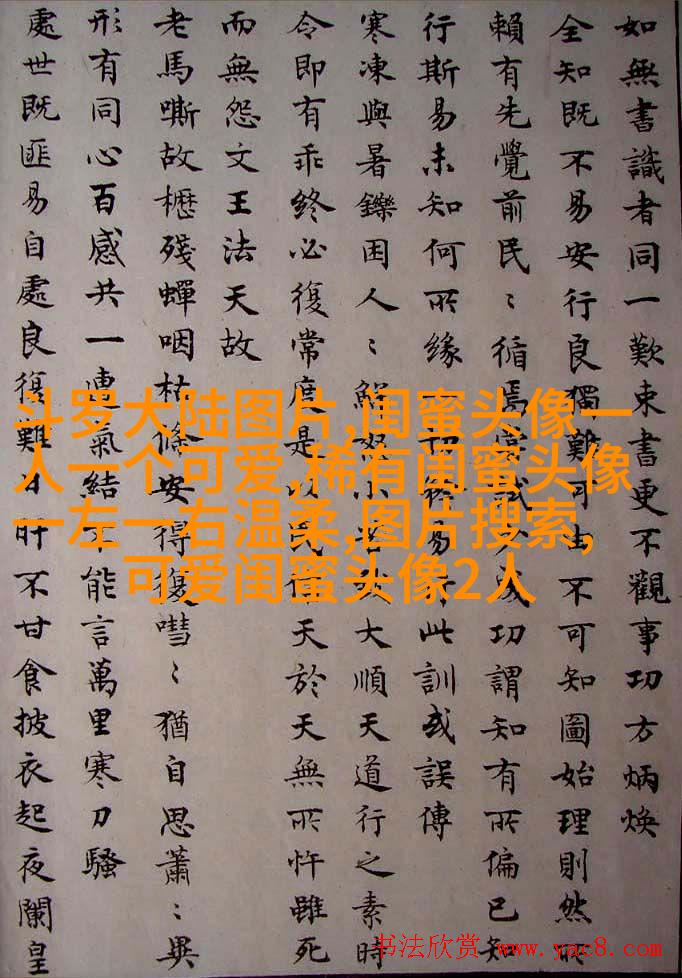 如無書識者同一歎束書更不觀事功方炳煥
全知既不易安行良獨難可由不可知圖始理則然所
賴有先覺前民〻循焉試成功謂知有所偏已知
行斯易未知何所緣切易此訓或誤傳
寒凍與暑鑠困人〻鮮怒小大順天道行之素時
令即有乖終必復常度是以民天於天無所忤雖死
而無怨文王法天故
老馬嘶故櫪殘蟬咽枯條安得復嘒〻猶自思蕭〻異
形有同心百感共一連氣結不能言萬里寒刀騷
處世既匪易自處良復難日旰不甘食披衣起夜闌皇
斗罗大陆图片,闺蜜头像一
人一个可爱,稀有闺蜜头像
一左一右温柔,图片搜索,
可爱闺蜜头像2人
书法欣赏 www.yac8.com